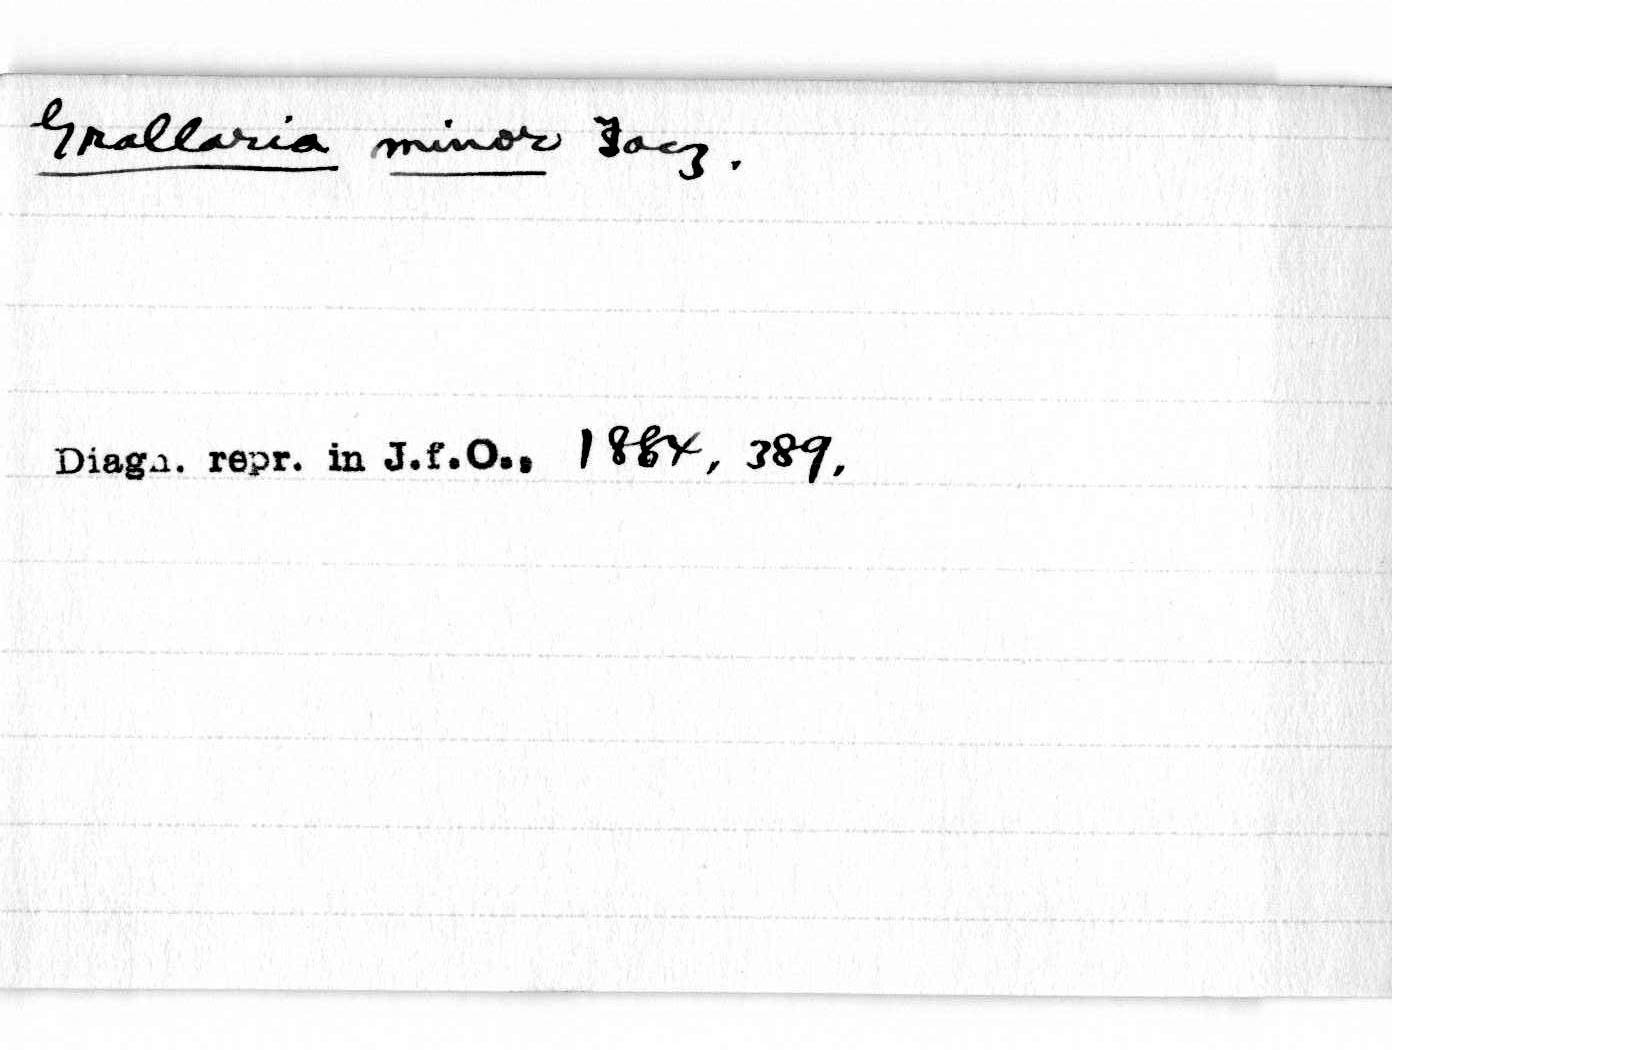 Grallaria minor Tacz.
Diagn. repr. in J.f.O., 1884, 389,